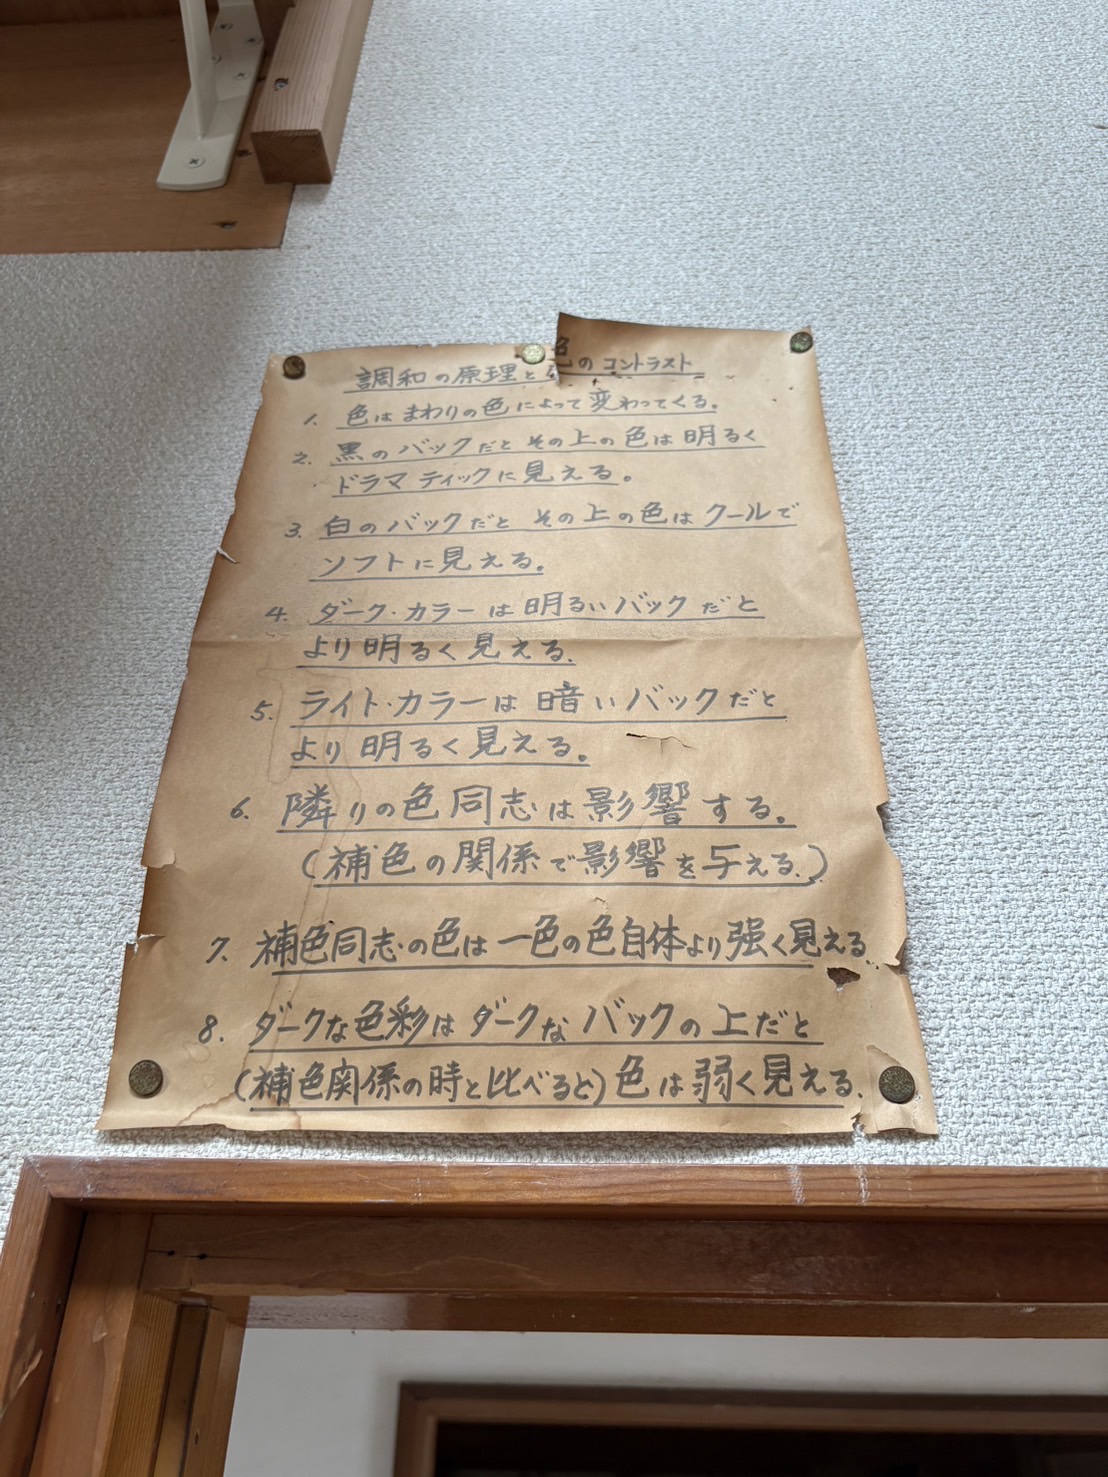 調和の原理と色のコントラスト
1. 色はまわりの色によって変わってくる。
2. 黒のバックだとその上の色は明るく
ドラマティックに見える。
3. 白のバックだと その上の色はクールで
ソフトに見える。
4. ダーク・カラーは明るいバックだと
より明るく見える.
5. ライト・カラーは暗いバックだと
より明るく見える。
6. 隣りの色同志は影響する。
(補色の関係で影響を与える.)
7. 補色同志の色は一色の色自体より強く見える.
8. ダークな色彩はダークなバックの上だと
(補色関係の時と比べると)色は弱く見える.